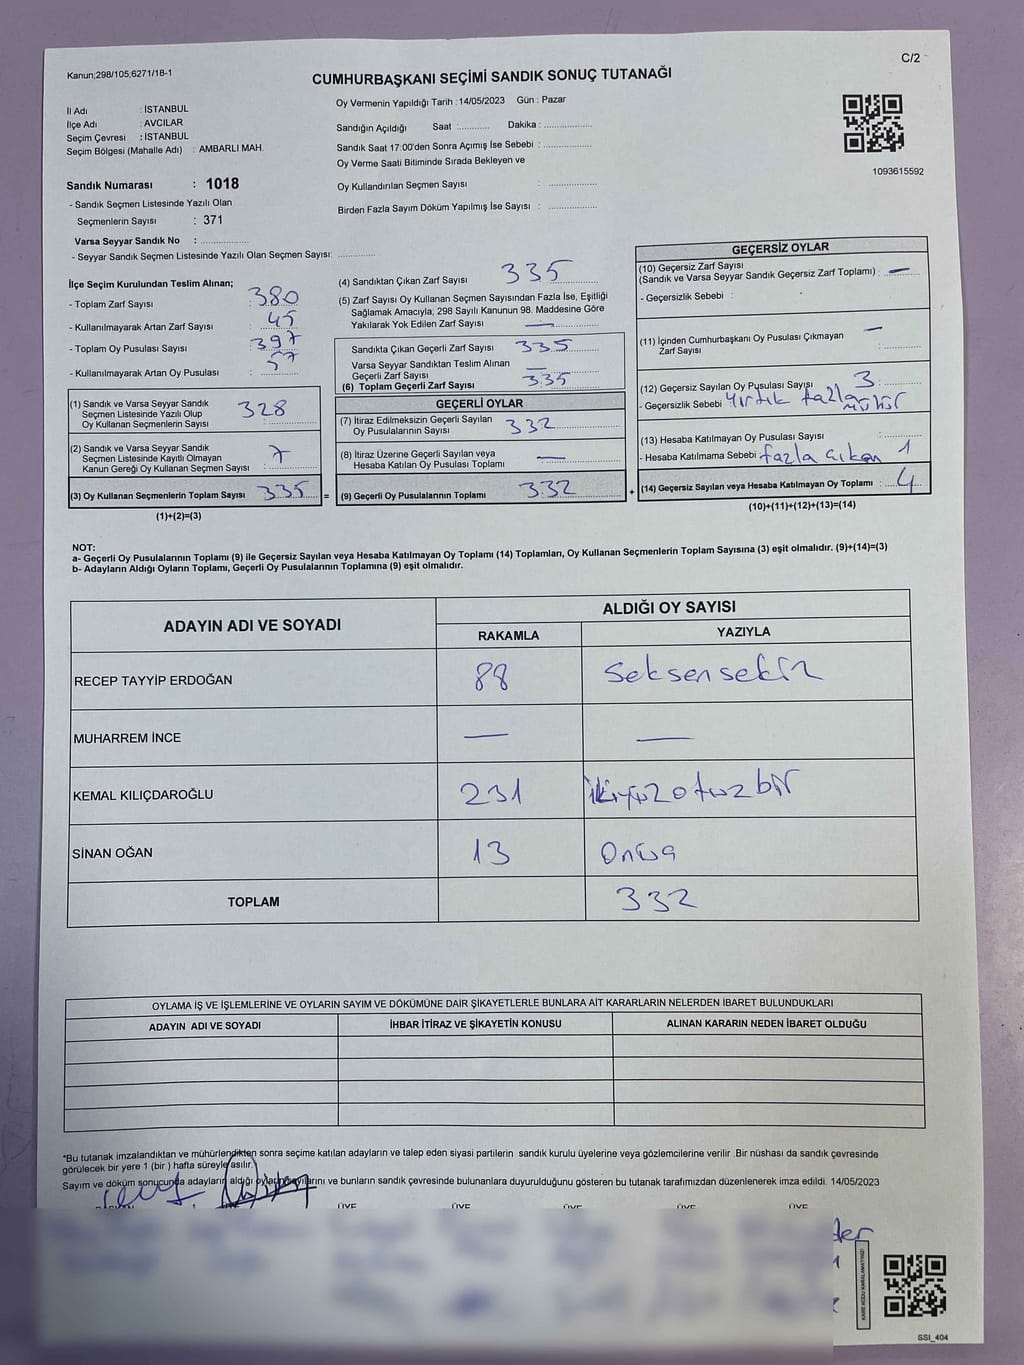 Kanun;298/105,6271/18-1
C/2
CUMHURBAŞKANI SEÇİMİ SANDIK SONUÇ TUTANAĞI
İl Adı : İSTANBUL
İlçe Adı : AVCILAR
Seçim Çevresi : İSTANBUL
Seçim Bölgesi (Mahalle Adı) : AMBARLI MAH.
Sandık Numarası : 1018
- Sandık Seçmen Listesinde Yazılı Olan
Seçmenlerin Sayısı : 371
Varsa Seyyar Sandık No : ................
- Seyyar Sandık Seçmen Listesinde Yazılı Olan Seçmen Sayısı: ............
Oy Vermenin Yapıldığı Tarih : 14/05/2023 Gün : Pazar
Sandığın Açıldığı Saat :........... Dakika : ................
Sandık Saat 17:00'den Sonra Açılmış İse Sebebi : ................
Oy Verme Saati Bitiminde Sırada Bekleyen ve
Oy Kullandırılan Seçmen Sayısı : ................
Birden Fazla Sayım Döküm Yapılmış İse Sayısı : ................
1093615592
İlçe Seçim Kurulundan Teslim Alınan;
- Toplam Zarf Sayısı : 380
- Kullanılmayarak Artan Zarf Sayısı : 45
- Toplam Oy Pusulası Sayısı : 397
- Kullanılmayarak Artan Oy Pusulası : 57
(1) Sandık ve Varsa Seyyar Sandık
Seçmen Listesinde Yazılı Olup
Oy Kullanan Seçmenlerin Sayısı : 328
(2) Sandık ve Varsa Seyyar Sandık
Seçmen Listesinde Kayıtlı Olmayan
Kanun Gereği Oy Kullanan Seçmen Sayısı : 7
(3) Oy Kullanan Seçmenlerin Toplam Sayısı : 335
(1)+(2)=(3)
=
(4) Sandıktan Çıkan Zarf Sayısı : 335
(5) Zarf Sayısı Oy Kullanan Seçmen Sayısından Fazla İse, Eşitliği
Sağlamak Amacıyla; 298 Sayılı Kanunun 98. Maddesine Göre
Yakılarak Yok Edilen Zarf Sayısı : —
Sandıkta Çıkan Geçerli Zarf Sayısı : 335
Varsa Seyyar Sandıktan Teslim Alınan
Geçerli Zarf Sayısı : —
(6) Toplam Geçerli Zarf Sayısı : 335
GEÇERLİ OYLAR
(7) İtiraz Edilmeksizin Geçerli Sayılan
Oy Pusulalarının Sayısı : 332
(8) İtiraz Üzerine Geçerli Sayılan veya
Hesaba Katılan Oy Pusulası Toplamı : —
(9) Geçerli Oy Pusulalarının Toplamı : 332
+
GEÇERSİZ OYLAR
(10) Geçersiz Zarf Sayısı
(Sandık ve Varsa Seyyar Sandık Geçersiz Zarf Toplamı) : —
- Geçersizlik Sebebi :
(11) İçinden Cumhurbaşkanı Oy Pusulası Çıkmayan —
Zarf Sayısı : ............
(12) Geçersiz Sayılan Oy Pusulası Sayısı : 3
- Geçersizlik Sebebi Yırtık fazla mühür
(13) Hesaba Katılmayan Oy Pusulası Sayısı : ............
- Hesaba Katılmama Sebebi : fazla çıkan 1
(14) Geçersiz Sayılan veya Hesaba Katılmayan Oy Toplamı : 4
(10)+(11)+(12)+(13)=(14)
NOT:
a- Geçerli Oy Pusulalarının Toplamı (9) ile Geçersiz Sayılan veya Hesaba Katılmayan Oy Toplamı (14) Toplamları, Oy Kullanan Seçmenlerin Toplam Sayısına (3) eşit olmalıdır. (9)+(14)=(3)
b- Adayların Aldığı Oyların Toplamı, Geçerli Oy Pusulalarının Toplamına (9) eşit olmalıdır.
ADAYIN ADI VE SOYADI
ALDIĞI OY SAYISI
RAKAMLA YAZIYLA
RECEP TAYYİP ERDOĞAN 88 Seksensekiz
MUHARREM İNCE — —
KEMAL KILIÇDAROĞLU 231 ikiyüzotuzbir
SİNAN OĞAN 13 Onüç
TOPLAM 332
OYLAMA İŞ VE İŞLEMLERİNE VE OYLARIN SAYIM VE DÖKÜMÜNE DAİR ŞİKAYETLERLE BUNLARA AİT KARARLARIN NELERDEN İBARET BULUNDUKLARI
ADAYIN ADI VE SOYADI İHBAR İTİRAZ VE ŞİKAYETİN KONUSU ALINAN KARARIN NEDEN İBARET OLDUĞU
*Bu tutanak imzalandıktan ve mühürlendikten sonra seçime katılan adayların ve talep eden siyasi partilerin sandık kurulu üyelerine veya gözlemcilerine verilir .Bir nüshası da sandık çevresinde
görülecek bir yere 1 (bir ) hafta süreyle asılır.
Sayım ve döküm sonucunda adayların aldığı oyların sayılarını ve bunların sandık çevresinde bulunanlara duyurulduğunu gösteren bu tutanak tarafımızdan düzenlenerek imza edildi. 14/05/2023
ÜYE ÜYE ÜYE ÜYE ÜYE
KARE KODU KARALAMAYINIZ!
SSI_404